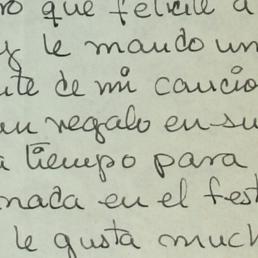 ro que felicite a
y le mando un
te de mi cancio
un regalo en su
a tiempo para
nada en el fest
le gusta much